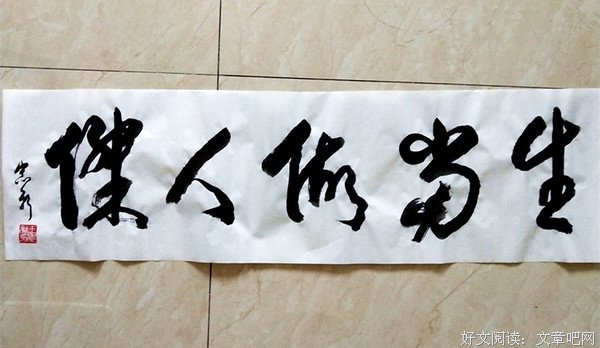 生当做人傑
好文阅读：文章吧网